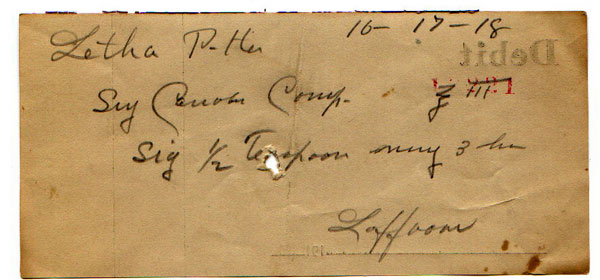 Letha Potter 10-17-18
Debit
Syr Comp. ℥ III
Sig 1/2 Teaspoon every 3 hr
Laffoon
191